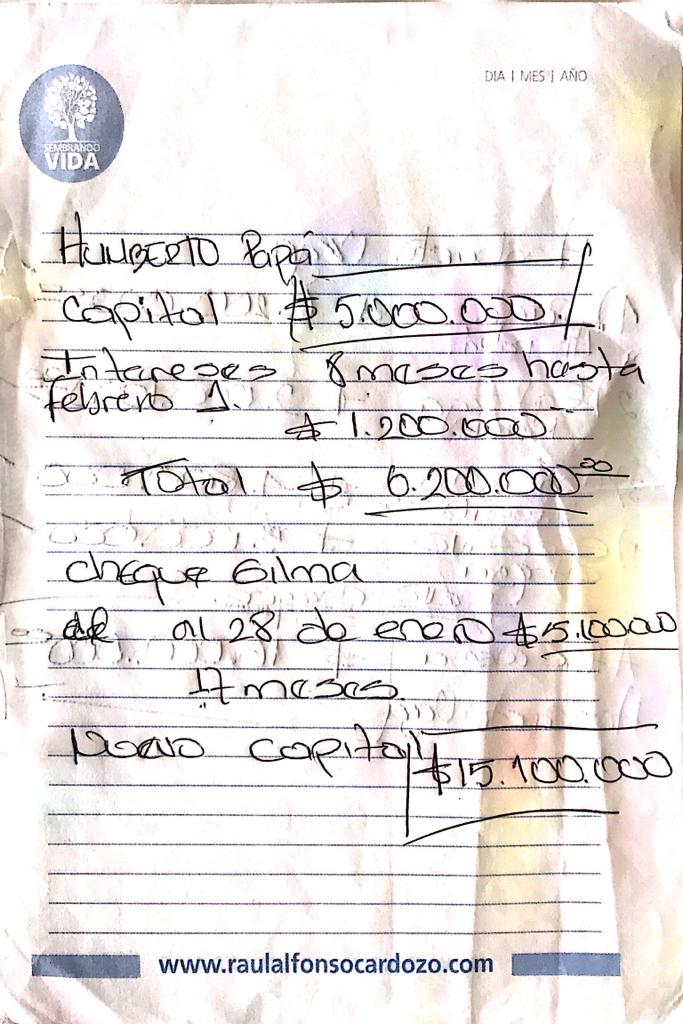 DIA | MES | AÑO
SEMBRANDO
VIDA
HUMBERTO Papá
Capital $ 5.000.000.
Intereses 8 meses hasta
febrero 1.
$ 1.200.000
Total $ 6.200.000 00
cheque Gilma
al 28 de enero $ 5.100000
17 meses
Nuevo capital $ 15.100.000
www.raulalfonsocardozo.com